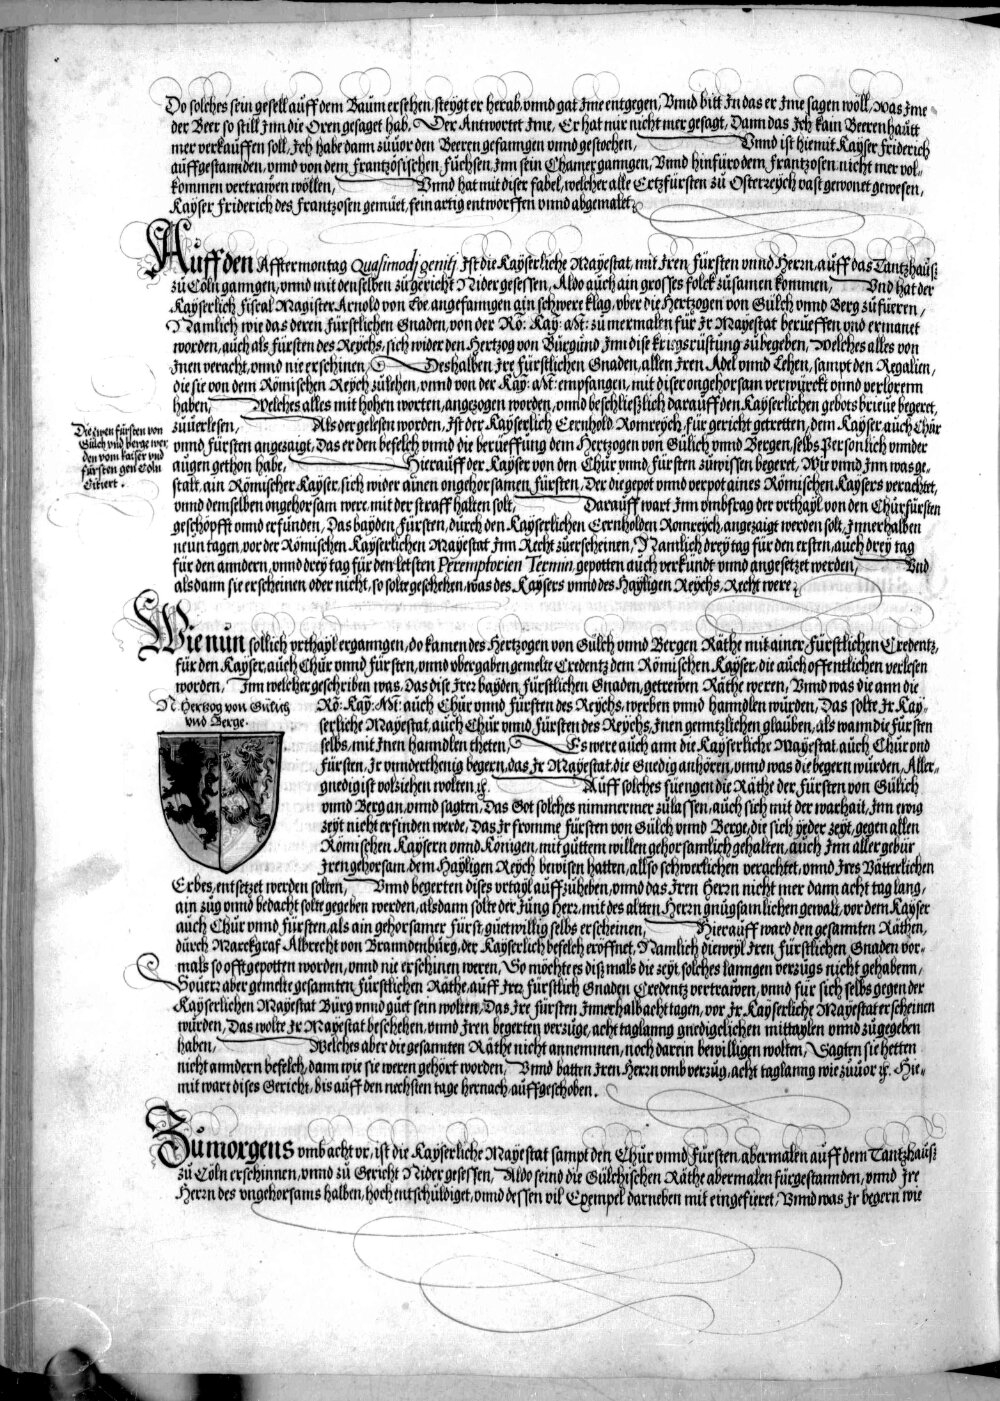 Do solches sein gesell auff dem Baum ersehen, steygt er herab, vnnd gat Ime entgegen, Vnnd bitt In das er Ime sagen wöll, was Ime
der Beer so still Inn die Oren gesaget hab, Der Antwortet Ime, Er hat mir nicht mer gesagt, Dann das Ich kain Beerenhautt
mer verkauffen soll, Ich habe dann zuuor den Beeren gefanngen vnnd gestochen, Vnnd ist hiemit Kayser Friderich
auffgestannden, vnnd von dem Frantzösischen Füchsen, Inn sein Chamer ganngen, Vnnd hinfüro dem Frantzosen nicht mer vol-
kommen vertrawen wöllen, Vnnd hat mit diser fabel, welcher alle Ertzfürsten zu Osterreych vast gewonet gewesen,
Kayser Friderich des Frantzosen gemüet, fein artig entworffen vnnd abgemalet.
Auff den Afftermontag Quasimodj genitj, Ist die Kayserliche Mayestat, mit Iren Fürsten vnnd Herrn, auff das Tantzhauß
zu Cöln ganngen, vnnd mit denselben zu gericht Nider gesessen, Aldo auch ain grosses folck zusamen kommen, Vnd hat der
Kayserlich Fiscal Magister Arnold von Eve angefanngen ain schwere klag, vber die Hertzogen von Gülch vnnd Berg zufüeren,
Namlich wie das deren Fürstlichen Gnaden, von der Rö: Kay: Mt: zu mermalen für Ir Mayestat berüeffen vnd ermanet
worden, auch als Fürsten des Reychs, sich wider den Hertzog von Burgund Inn dise kriegsrüstung zubegeben, Welches alles von
Inen veracht, vnnd nie erschinen, Deshalben Ire Fürstlichen Gnaden, allen Iren Adel vnnd Lehen, sampt den Regalien,
die sie von dem Römischen Reych zulehen, vnnd von der Kay: Mt: empfangen, mit diser ongehorsam verwürckt vnnd verlorenn
haben, Welches alles mit hohen worten, angezogen worden, vnnd beschließlich darauff den Kayserlichen gebots brieue begeret,
zuuerlesen, Als der gelesten worden, Ist der Kayserlich Eernhold Romreych, für gericht getretten, dem Kayser auch Chür
Die zwen fürsten von
Gülch vnd berge wer
den vom kaiser vnd
fürsten gen Cöln
Citiert.
vnnd Fürsten angezaigt, Das er den befelch vnnd die berüeffung dem Hertzogen von Gülich vnnd Bergen, selbs Persönlich vnnder
augen gethon habe, Hierauff der Kayser von den Chür vnnd Fürsten zuwissen begeret, Wie vnnd Inn was ge-
stalt, ain Römischer Kayser, sich wider ainen ongehorsamen Fürsten, Der die gepot vnnd verpot aines Römischen Kaysers verachtet,
vnnd demselben ongehorsam were, mit der straff halten solt, Darauff wart Inn vmbfrag der vrthayl von den Chürfürsten
geschöpfft vnnd erfunden, Das bayden Fürsten, durch den Kayserlichen Eernholden Romreych, angezaigt werden solt, Innerhalben
neun tagen, vor der Römischen Kayserlichen Mayestat Inn Recht zuerscheinen, Namlich drey tag für den ersten, auch drey tag
für den anndern, vnnd drey tag für den letsten Peremptorien Termin, gepotten auch verkündt vnnd angesetzet werden, Vnd
alsdann sie erscheinen oder nicht, so solte geschehen, was des Kaysers vnnd des Hayligen Reychs, Recht were.
Wie nun sollich vrthayl erganngen, do kamen des Hertzogen von Gülch vnnd Bergen Räthe mit ainer Fürstlichen Credentz,
für den Kayser, auch Chür vnnd Fürsten, vnnd vbergaben gemelte Credentz dem Römischen Kayser, die auch offentlichen verlesen
worden, Inn welcher geschriben was, Das dise Irer bayden Fürstlichen Gnaden, getrewen Räthe weren, Vnnd was die ann die
N. Hertzog von Gülich
vnd Berge.
Rö: Kay: Mt: auch Chür vnnd Fürsten des Reychs, werben vnnd hanndlen würden, Das solte Ir Kay-
serliche Mayestat, auch Chür vnnd Fürsten des Reychs, Inen genntzlichen glauben, als wann die Fürsten
selbs, mit Inen hanndlen theten, Es were auch ann die Kayserliche Mayestat, auch Chür vnd
Fürsten, Ir vnnderthenig begern, das Ir Mayestat die Gnedig anhören, vnnd was die begern würden, Aller-
gnedigist volziehen wolten [et]c. Auff solches füengen die Räthe der Fürsten von Gülich
vnnd Berg an, vnnd sagten, Das Got solches nimmermer zulassen, auch sich mit der warhait, Inn ewig
zeyt nicht erfinden werde, Das Ir fromme Fürsten von Gülch vnnd Berge, die sich yeder zeyt, gegen allen
Römischen Kaysern vnnd Königen, mit guttem willen gehorsamlich gehalten, auch Inn aller gebür
Iren gehorsam, dem Hayligen Reych bewisen hatten, allso schwerlichen verachtet, vnnd Ires Vätterlichen
Erbes, entsetzet werden solten, Vnnd begerten dises vrtayl auffzuheben, vnnd das Iren Herrn nicht mer dann acht tag lang,
ain zug vnnd bedacht solte gegeben werden, alsdann solte der Jung Herr, mit des altten Herrn gnugsamlichen gewalt, vor dem Kayser
auch Chür vnnd Fürsten, als ain gehorsamer Fürst, guetwillig selbs erscheinen, Hierauff ward den gesannten Räthen,
durch Marckgraf Albrecht von Branndenburg, der Kayserlich befelch eröffnet, Namlich dieweyl Iren Fürstlichen Gnaden vor-
mals so offt gepotten worden, vnnd nie erschinen weren, So möchte es diß mals die zeyt, solches lanngen verzugs nicht gehabenn,
Souerr aber gemelte gesannten Fürstlichen Räthe, auff Irer Fürstlich Gnaden Credentz vertrawen, vnnd für sich selbs gegen der
Kayserlichen Mayestat Burg vnnd guet sein wolten, Das Ire Fürsten Innerhalb acht tagen, vor Ir Kayserliche Mayestat erscheinen
würden, Das wolte Ir Mayestat beschehen, vnnd Iren begerten verzuge, acht taglanng gnedigclichen mittaylen vnnd zugegeben
haben, Welches aber die gesannten Räthe nicht annemmen, noch darein bewilligen wolten, Sagten sie hetten
nicht anndern befelch, dann wie sie weren gehört worden, Vnnd batten Iren Herrn vmb verzug, acht taglanng wie zuuor [et]c. Hie-
mit wart dises Gericht, bis auff den nechsten tage hernach, auffgeschoben.
Zumorgens vmb acht vr, ist die Kayserliche Mayestat sampt den Chür vnnd Fürsten abermalen auff dem Tantzhauß
zu Cöln erschinnen, vnnd zu Gericht Nider gesessen, Aldo seind die Gülchischen Räthe abermalen fürgestannden, vnnd Ire
Herrn des vngehorsams halben, hoch entschuldiget, vnnd dessen vil Exempel darneben mit eingefieret, Vnnd was Ir begern wie